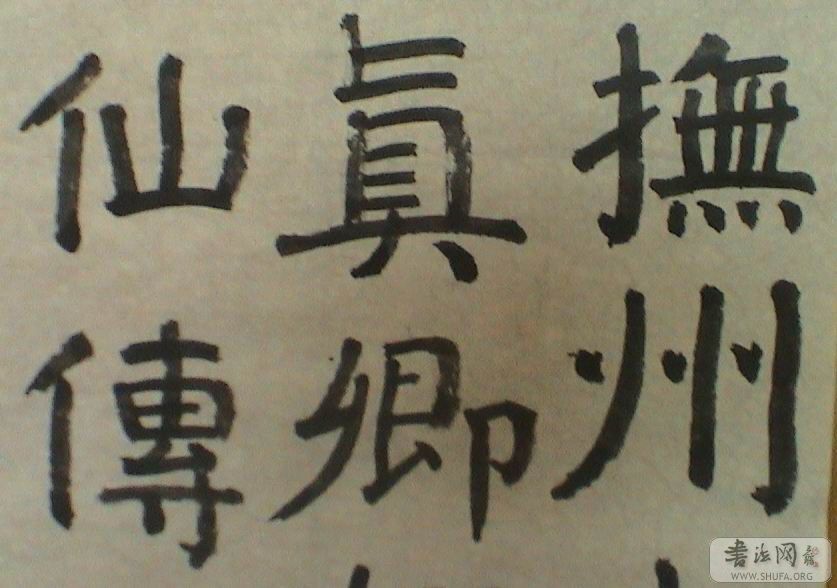 撫州
真卿
仙傳
書法网
WWW.SHUFA.ORG